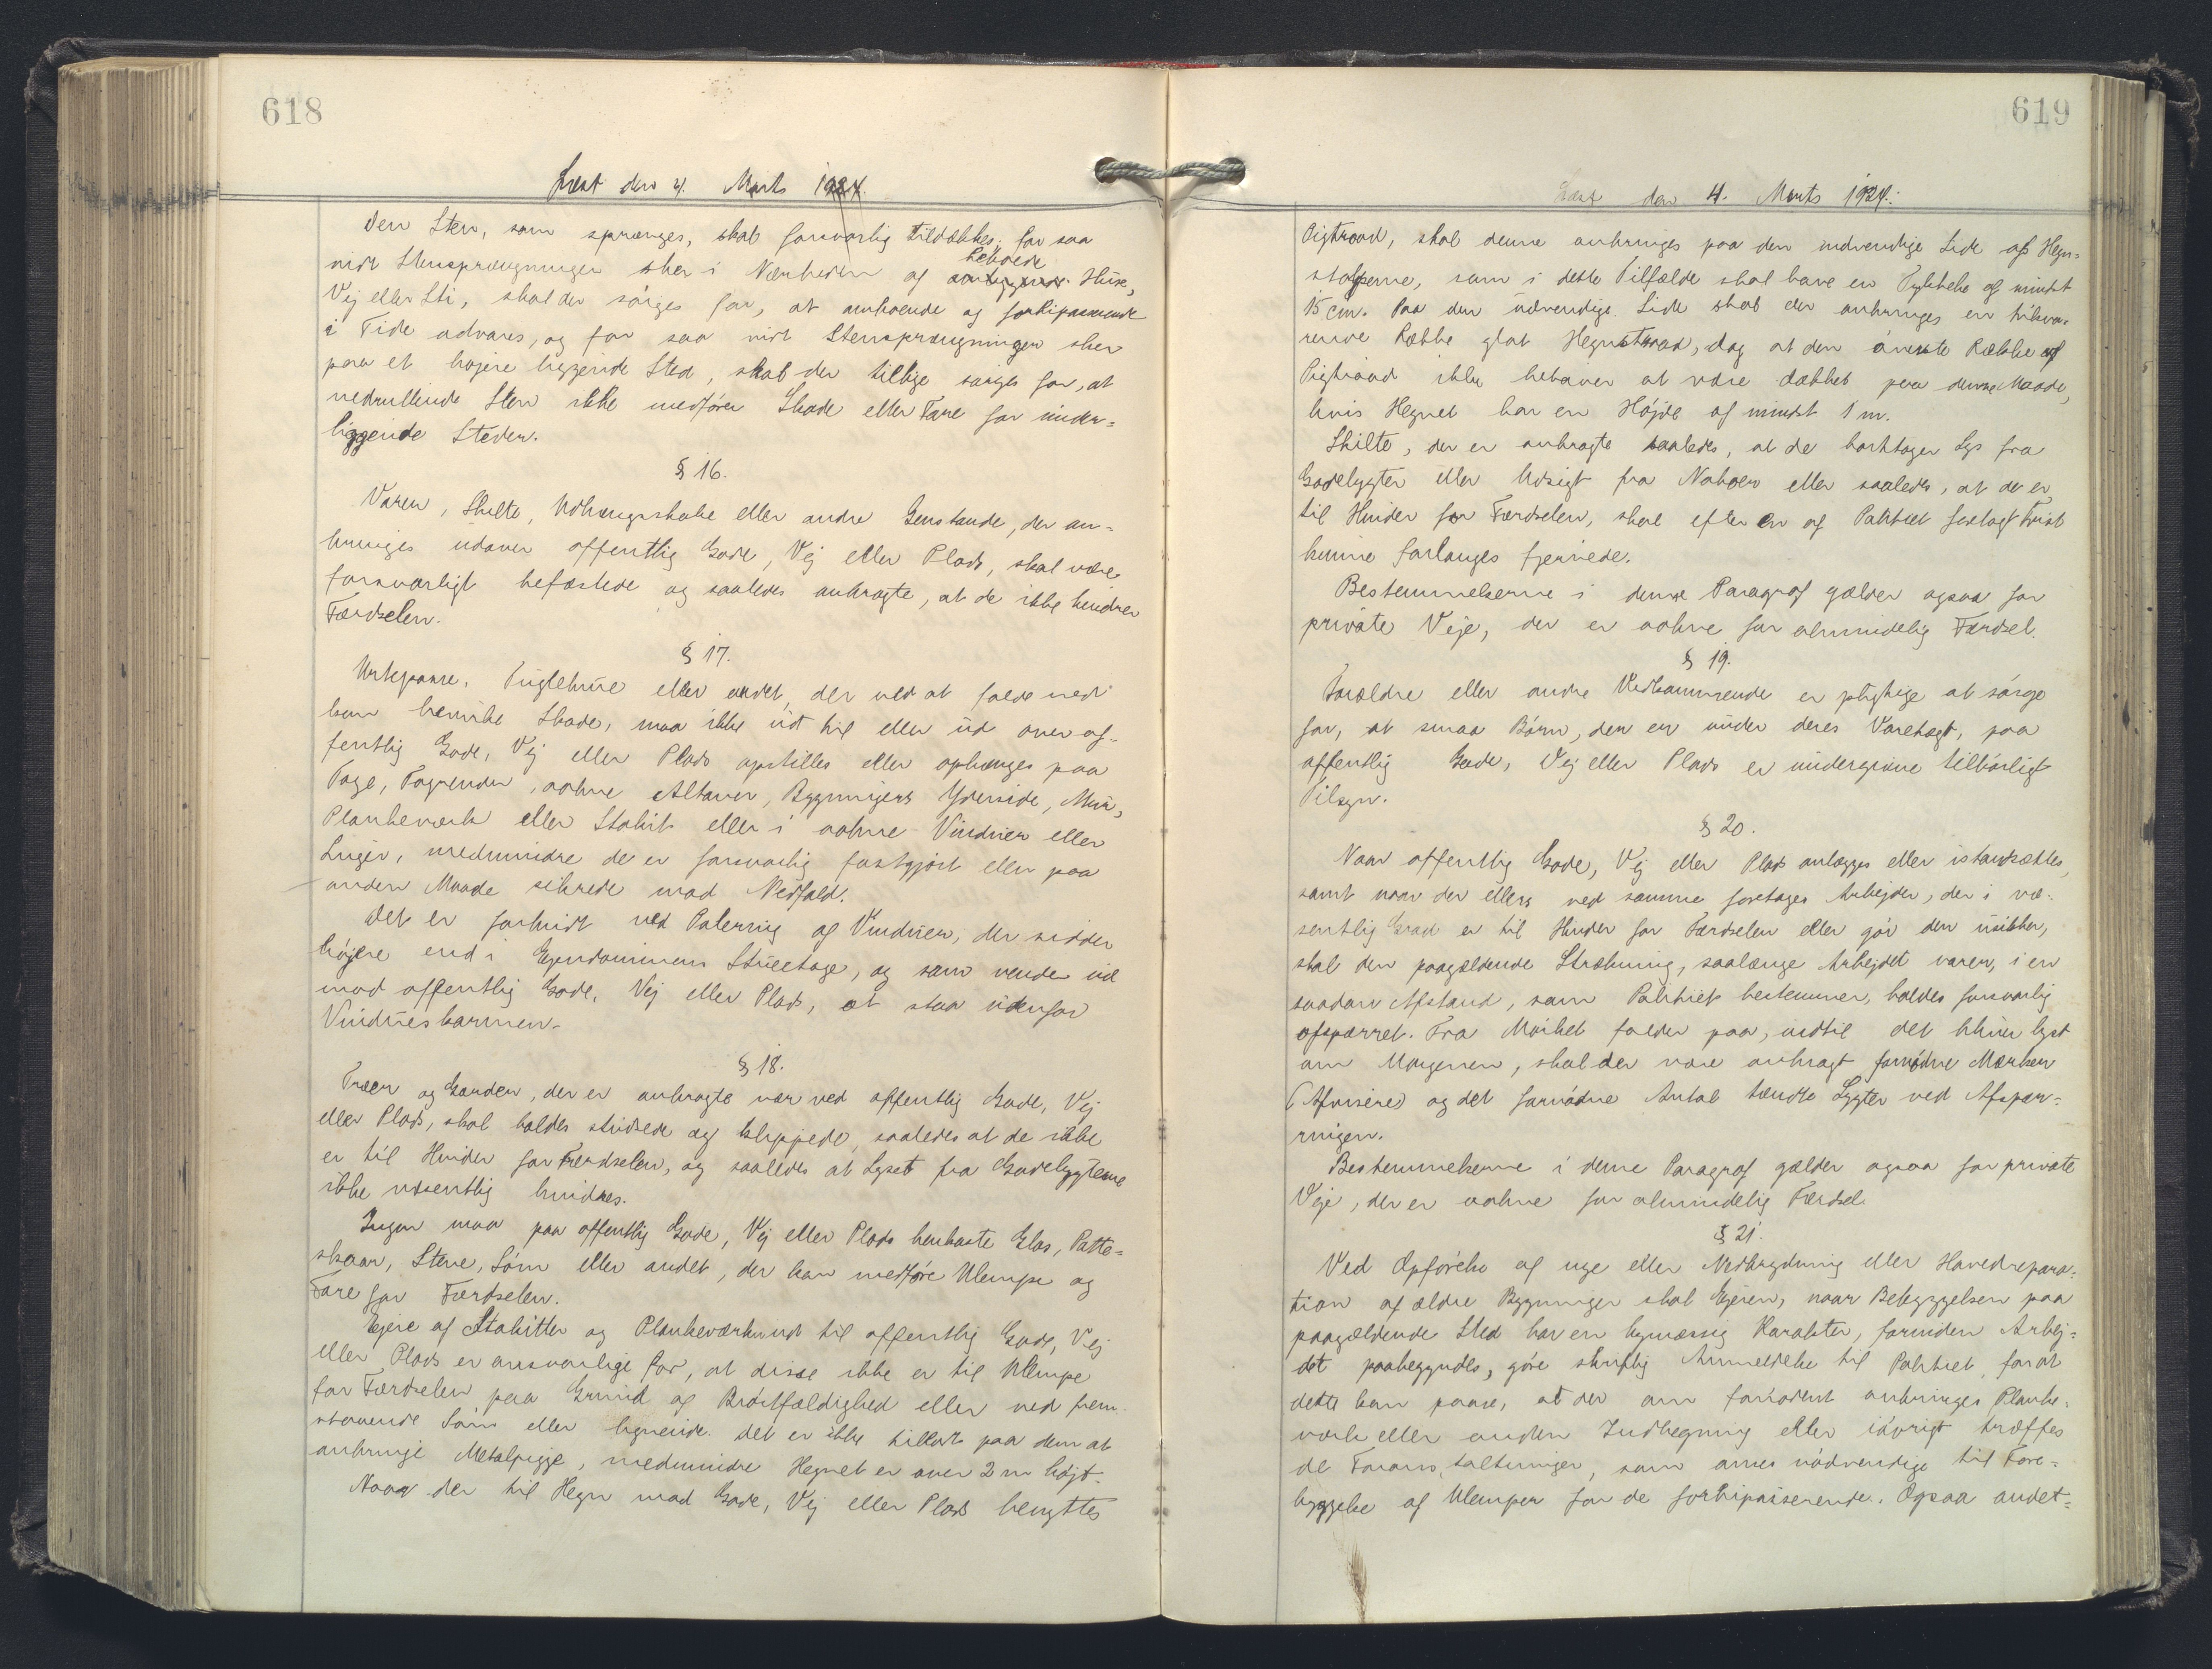 618
Læst den 4. Marts 1924.
den Sten, som sprænges, skal forsvarlig tildækkes; for saa
vidt Stensprængninger sker i Nærheden af beboede Huse,
Vej eller Sti, skal der sørges for, at omboende og forbipasserende
i Tide advares, og for saa vidt Stensprængningen sker
paa et højere liggende Sted, skal der tillige sørges for, at
nedrullende Sten ikke medfører Skade eller Fare for under-
liggende Steder.
§ 16.
Varer, Skilte, Udhængsskabe eller andre Genstande, der an-
bringes udover offentlig Gade, Vej eller Plads, skal være
forsvarligt befæstede og saaledes anbragte, at de ikke hindrer
Færdselen.
§ 17.
Urtepotter, Fuglebure eller andet, der ved at falde ned
kan bevirke Skade, maa ikke ud til eller ud over of-
fentlig Gade, Vej eller Plads opstilles eller ophænges paa
Tage, Tagrender, aabne Altaner, Bygningers Yderside, Mur,
Plankeværk eller Stakit eller i aabne Vinduer eller
Luger, medmindre de er forsvarlig fastgjort eller paa
anden Maade sikrede mod Nedfald.
Det er forbudt ved Polering af Vinduer, der sidder
højere end i Ejendommens Stueetage, og som vender ud
mod offentlig Gade, Vej eller Plads, at staa udenfor
Vindueskarmen.
§ 18.
Træer og Hæk, der er anbragte nær ved offentlig Gade, Vej
eller Plads, skal holdes studsede og klippede, saaledes at de ikke
er til Hinder for Færdselen, og saaledes at Lyset fra Gadelygterne
ikke væsentlig hindres.
Ingen maa paa offentlig Gade, Vej eller Plads henkaste Glas, Potte-
skaar, Stene, Søm eller andet, der kan medføre Ulempe og
Fare for Færdselen.
Ejere af Stakitter og Plankeværker ud til offentlig Gade, Vej
eller Plads er ansvarlige for, at disse ikke er til Ulempe
for Færdselen paa Grund af Brøstfældighed eller ved frem-
staaende Søm eller lignende. Det er ikke tilladt paa dem at
anbringe Metalpigge, medmindre Hegnet er over 2 m højt.
Naar der til Hegn mod Gade, Vej eller Plads benyttes
619
Læst den 4. Marts 1924.
Pigtraad, skal denne anbringes paa den indvendige Side af Hegn-
stolperne, som i dette Tilfælde skal have en Tykkelse af mindst
15 cm. Paa den udvendige Side skal der anbringes en tilsva-
rende Række glat Hegnstraad, dog at den øverste Række af
Pigtraad ikke behøver at være dækket paa denne Maade,
hvis Hegnet har en Højde af mindst 1 m.
Skilte, der er anbragte saaledes, at de borttager Lys fra
Gadelygter eller Udsigt fra Naboer eller saaledes, at de er
til Hinder for Færdselen, skal efter en af Politiet fastsat Frist
kunne forlanges fjernede.
Bestemmelserne i denne Paragraf gælder ogsaa for
private Veje, der er aabne for almindelig Færdsel.
§ 19.
Forældre eller andre Vedkommende er pligtige at sørge
for, at smaa Børn, der er under deres Varetægt, paa
offentlig Gade, Vej eller Plads er undergivne tilbørligt
Tilsyn.
§ 20.
Naar offentlig Gade, Vej eller Plads anlægges eller istandsættes,
samt naar der ellers ved samme foretages Arbejder, der i væ-
sentlig Grad er til Hinder for Færdselen eller gør den usikker,
skal den paagældende Strækning, saalænge Arbejdet varer, i en
saadan Afstand, som Politiet bestemmer, holdes forsvarlig
afspærret. Fra Mørket falder paa, indtil det bliver lyst
om Morgenen, skal der være anbragt fornødne Mærker
(Afvisere) og det fornødne Antal tændte Lygter ved Afspær-
ringen.
Bestemmelserne i denne Paragraf gælder ogsaa for private
Veje, der er aabne for almindelig Færdsel.
§ 21.
Ved Opførelse af nye eller Nedbrydning eller Hovedrepara-
tion af ældre Bygninger skal Ejeren, naar Bebyggelsen paa
paagældende Sted har en bymæssig Karakter, forinden Arbej-
det paabegyndes, gøre skriftlig Anmeldelse til Politiet, for at
dette kan paase, at der om fornødent anbringes Planke-
værk eller anden Indhegning eller iøvrigt træffes
de Foranstaltninger, som anses nødvendige til Fore-
byggelse af Ulemper for de forbipasserende. Ogsaa andet-